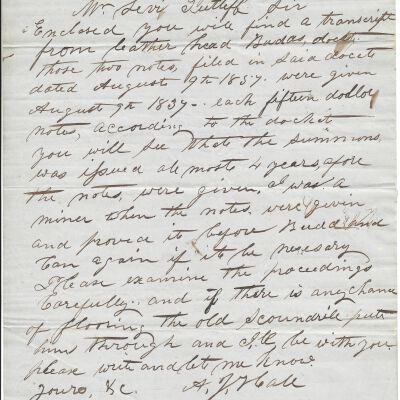 Mr Levi Sir
Enclosed you will find a transcript
from leather head Budds docet
those two notes, filed in Said docets
dated August 9th 1837. were given
August 9th 1839 - each fifteen dollar
notes, according to the docket
you will see thats the summons
was issued all most 4 years, afore
the notes, were given, I was a
miner when the notes were given
and proved it before Budd and
Can again if it be nesesary
Please examine the proceedings
Carefully. and if there is any chance
of flooring the old Scoundrile put
him through and Ill be with you.
please write and let me know.
yours, &c. A. J. Hall